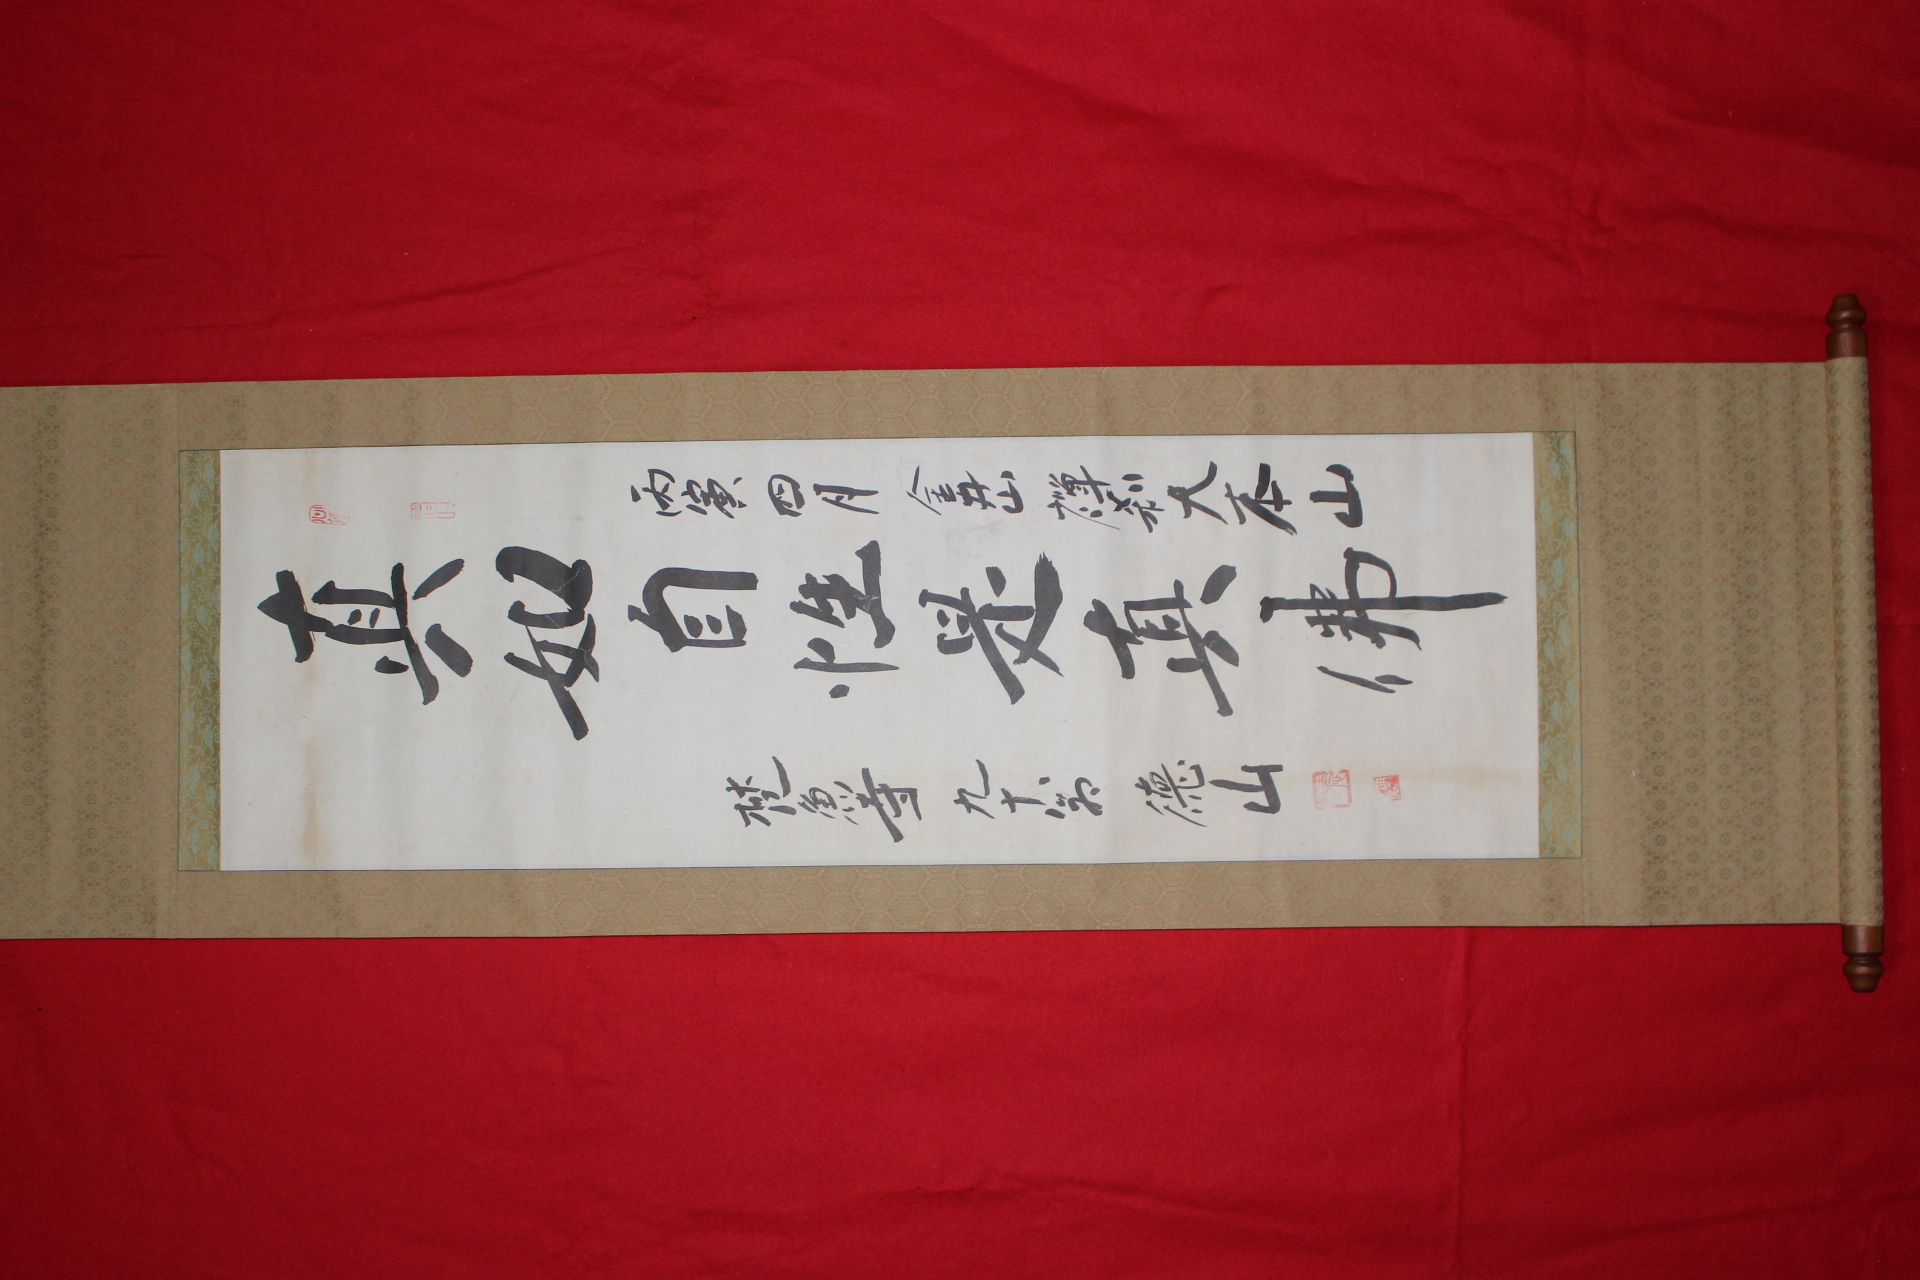 丙寅四月 金井山 禪刹大本山
真如自性是真佛
梵魚寺 九十八翁 德山